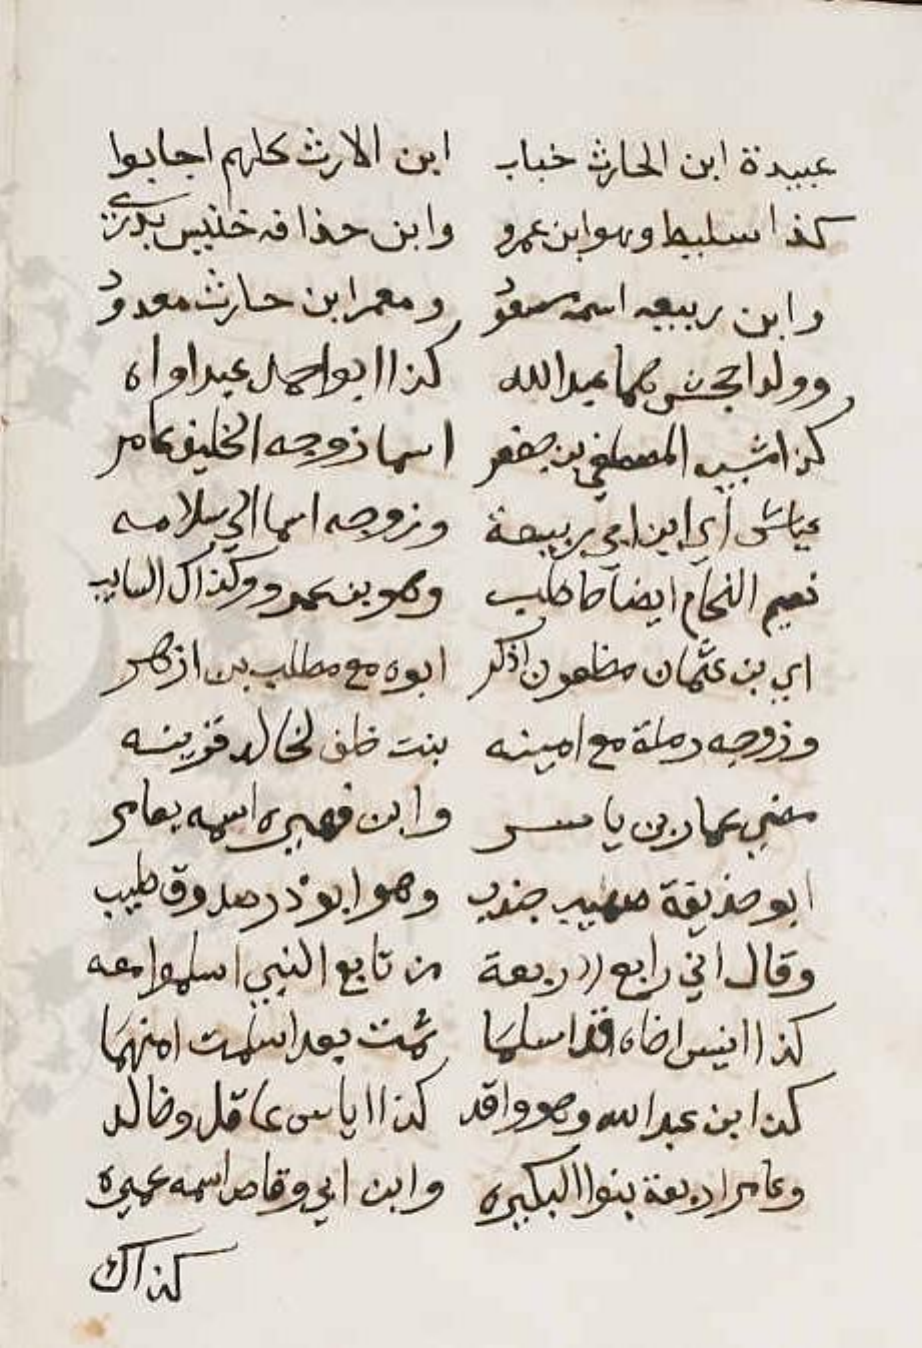 عبيدة ابن الحارث خباب ابن الارث كلهم اجابوا
كذا سليط وهو ابن عمرو وابن حذافه خنيس بدري
وابن ربيعه اسمه مسعود ومعمر ابن حارث معدود
وولدا جحش هما عبدالله كذا ابو احمد عبد اواه
كذا شبيه المصطفى بن جعفر اسما زوجه الخليف عامر
عياش اي ابن ابي ربيعة وزوجه اسما الى سلامه
نعيم النحام ايضا حاطب وهو بن عمرو وكذاك السايب
اي بن عثمان مظعون اذكر ابوه مع مطلب بن ازهر
وزوجه رملة مع امينه بنت خلف لخالد قرينه
مضي عمار بن ياسر وابن فهيره اسمه بعامر
ابو حذيقة صهيب جندب وهو ابو ذر صدوق طيب
وقال اني رابع اربعة من تابع النبي اسلموا معه
كذا انيس اخاه قد اسلما ثمت بعد اسلمت امنهما
كذا ابن عبدالله وهو واقد كذا اياس عاقل وخالد
وعامر اربعة بنوا البكيره وابن ابي وقاص اسمه عميره
كذاك